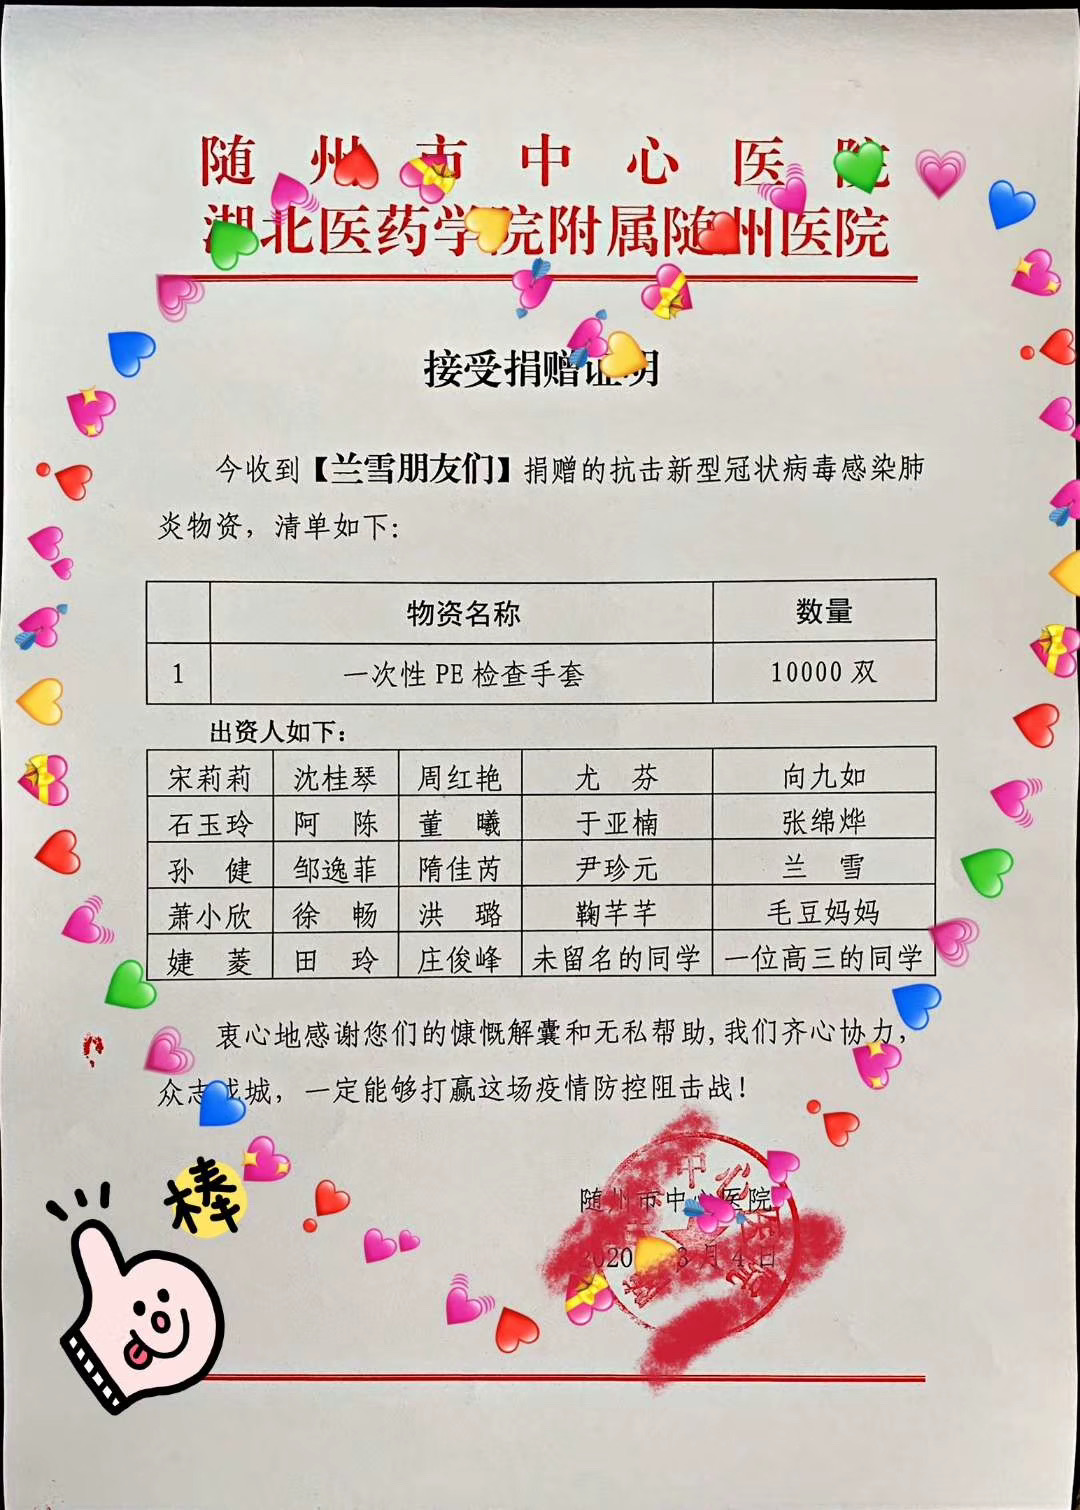 随州市中心医院
湖北医药学院附属随州医院
接受捐赠证明
今收到【兰雪朋友们】捐赠的抗击新型冠状病毒感染肺
炎物资，清单如下：
物资名称 数量
1 一次性 PE 检查手套 10000 双
出资人如下：
宋莉莉 沈桂琴 周红艳 尤 芬 向九如
石玉玲 阿 陈 董 曦 于亚楠 张绵烨
孙 健 邹逸菲 隋佳芮 尹珍元 兰 雪
萧小欣 徐 畅 洪 璐 鞠芊芊 毛豆妈妈
婕 菱 田 玲 庄俊峰 未留名的同学 一位高三的同学
衷心地感谢您们的慷慨解囊和无私帮助，我们齐心协力，
众志成城，一定能够打赢这场疫情防控阻击战！
棒
随州市中心医院
2020 3月4日